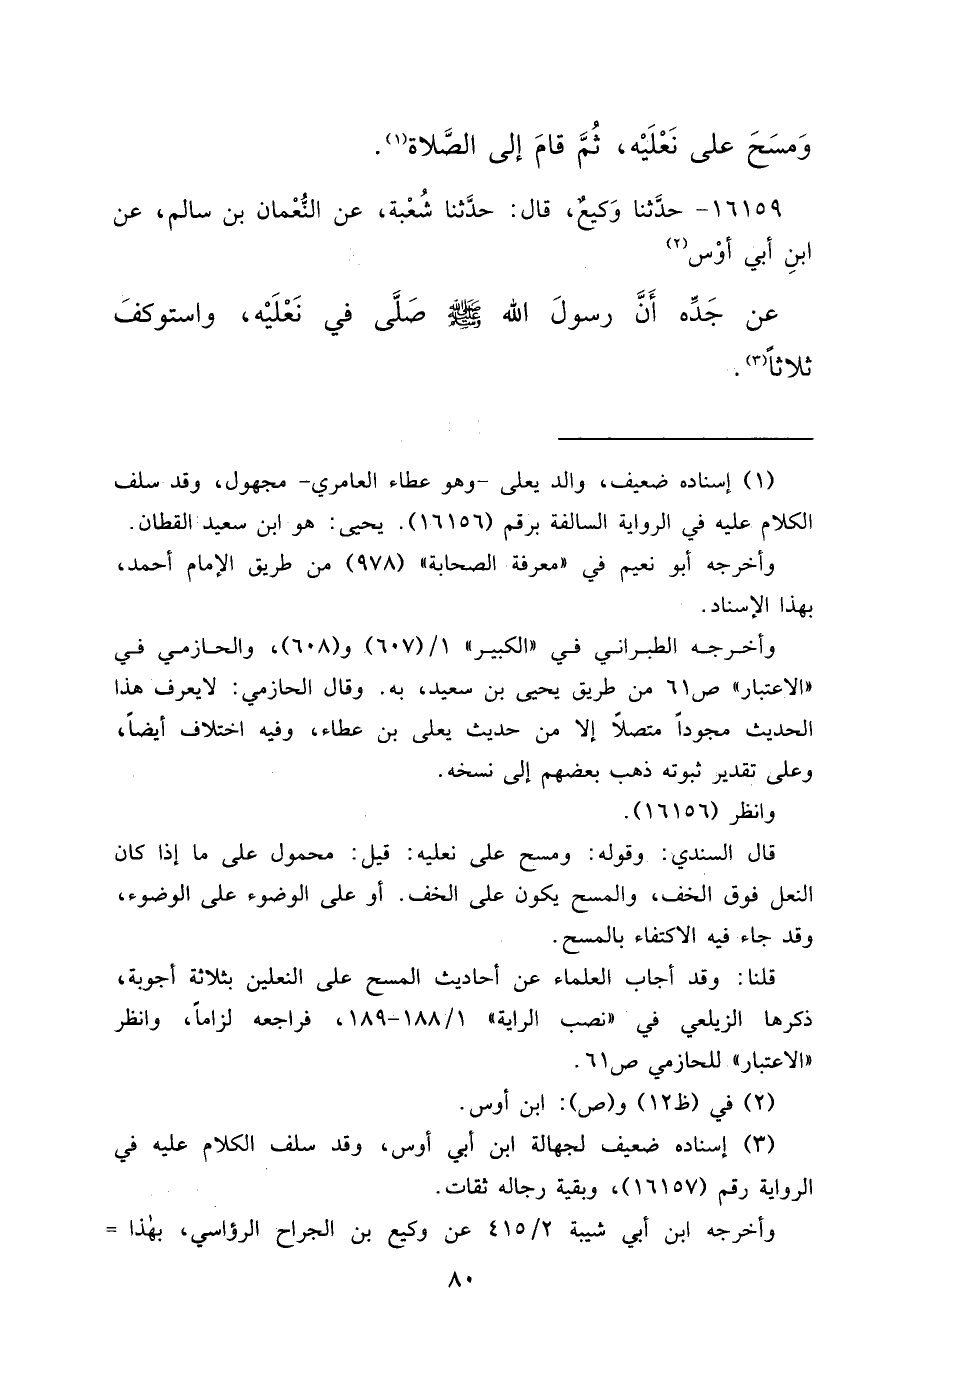 وَمسَحَ على نَعْلَيْه، ثُمَّ قامَ إلى الصَّلاة(١).
١٦١٥٩- حدَّثنا وَكيعٌ، قال: حدَّثنا شُعْبة، عن النُّعْمان بن سالم، عن
ابنِ أبي أوْس(٢)
عن جَدِّه أَنَّ رسولَ الله ﷺ صَلَّى في نَعْلَيْه، واستوكفَ
ثلاثاً(٣).
(١) إسناده ضعيف، والد يعلى -وهو عطاء العامري- مجهول، وقد سلف
الكلام عليه في الرواية السالفة برقم (١٦١٥٦). يحيى: هو ابن سعيد القطان.
وأخرجه أبو نعيم في «معرفة الصحابة» (٩٧٨) من طريق الإمام أحمد،
بهذا الإسناد.
وأخرجه الطبراني في «الكبير» ١/(٦٠٧) و(٦٠٨)، والحازمي في
«الاعتبار» ص٦١ من طريق يحيى بن سعيد، به. وقال الحازمي: لايعرف هذا
الحديث مجوداً متصلاً إلا من حديث يعلى بن عطاء، وفيه اختلاف أيضاً،
وعلى تقدير ثبوته ذهب بعضهم إلى نسخه.
وانظر (١٦١٥٦).
قال السندي: وقوله: ومسح على نعليه: قيل: محمول على ما إذا كان
النعل فوق الخف، والمسح يكون على الخف. أو على الوضوء على الوضوء،
وقد جاء فيه الاكتفاء بالمسح.
قلنا: وقد أجاب العلماء عن أحاديث المسح على النعلين بثلاثة أجوبة،
ذكرها الزيلعي في «نصب الراية» ١/١٨٨-١٨٩، فراجعه لزاماً، وانظر
«الاعتبار» للحازمي ص٦١.
(٢) في (ظ١٢) و(ص): ابن أوس.
(٣) إسناده ضعيف لجهالة ابن أبي أوس، وقد سلف الكلام عليه في
الرواية رقم (١٦١٥٧)، وبقية رجاله ثقات.
وأخرجه ابن أبي شيبة ٤١٥/٢ عن وكيع بن الجراح الرؤاسي، بهٰذا =
٨٠